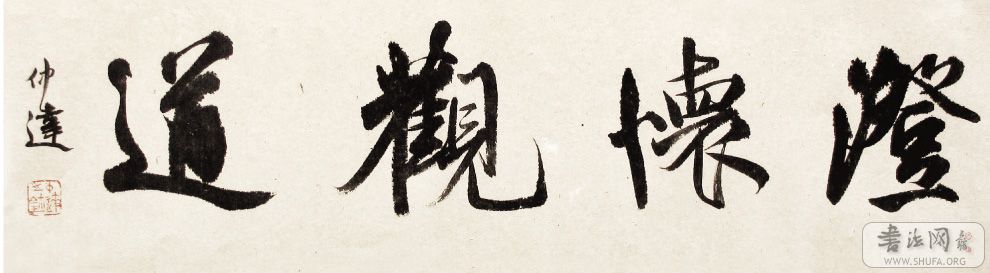 澄懷觀道
仲達
書法网
WWW.SHUFA.ORG